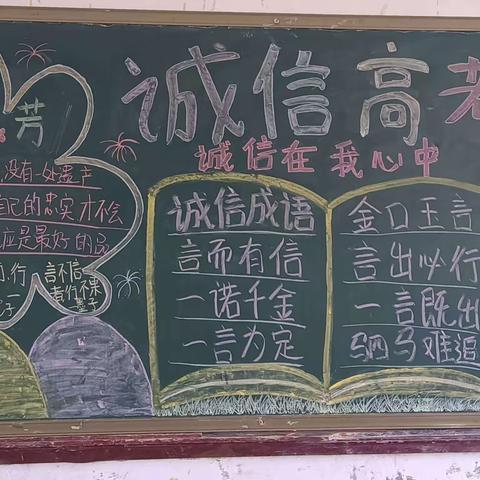 诚信高考
诚信在我心中
芳
没有一处遗产
己的忠实才不会
应是最好的
行
言不信
者行不果
墨子
诚信成语
言而有信
一诺千金
一言为定
金口玉言
言出必行
一言既出
驷马难追